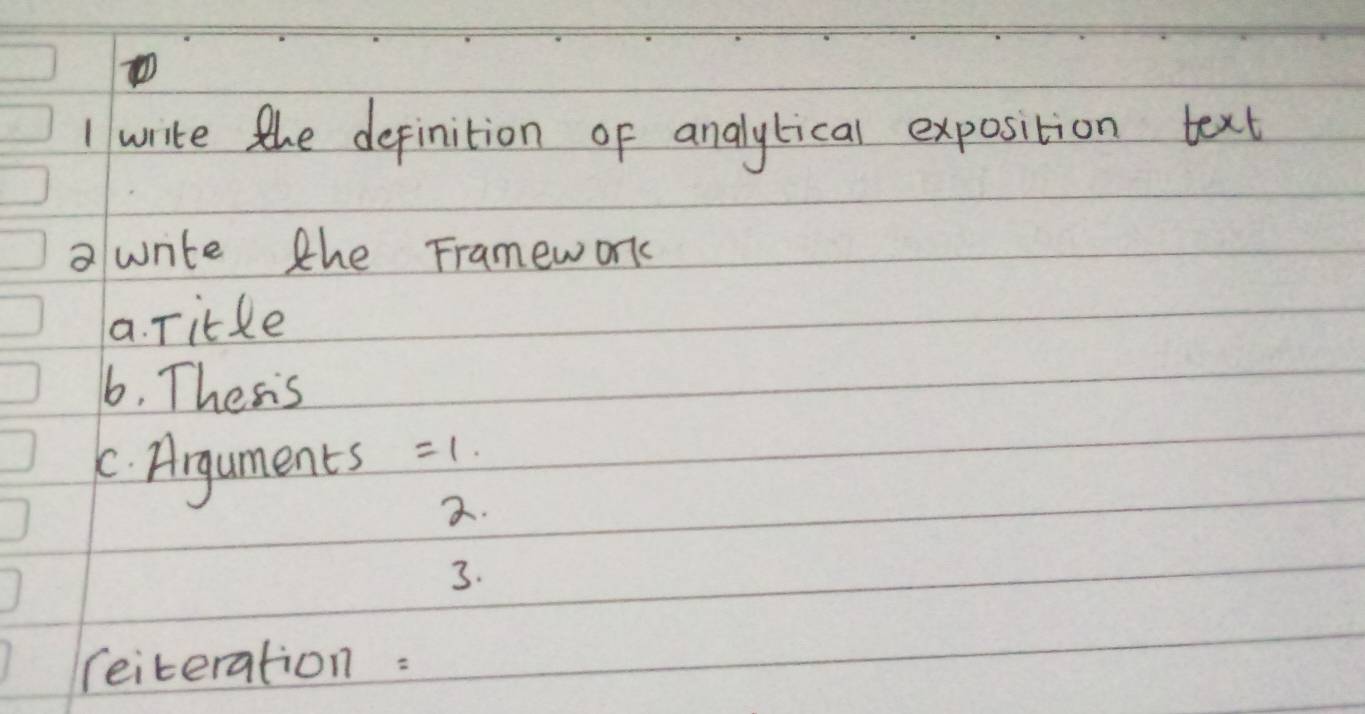 1 write the definition of analytical exposition text
2 write the Framework
a. Title
b. Thesis
c. Arguments = 1.
2.
3.
reiteration =